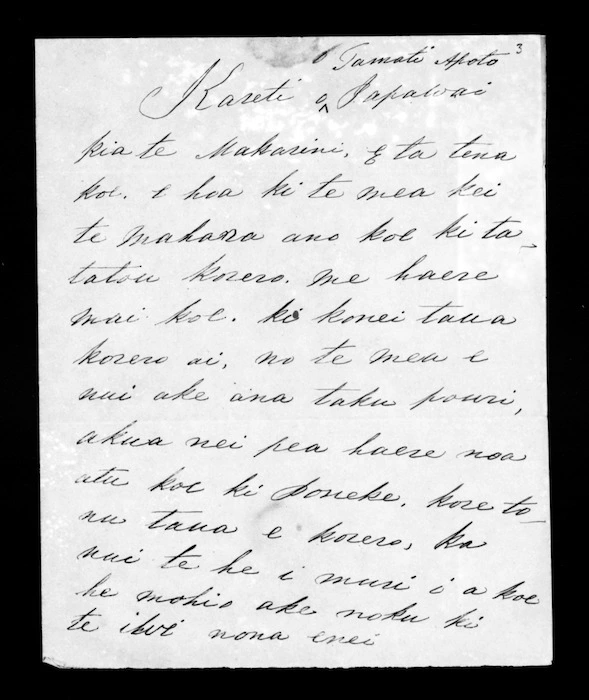 Tamati Apoto 3
Kareti o Papawai
kia te Makarini, E ta tena
koe. e hoa ki te mea kei
te mahara ano koe ki ta-
tatou korero. me haere
mai koe. ki konei taua
korero ai, no te mea e
nui ake ana taku pouri,
akua nei pea haere noa
atu koe ki Poneke, kore to-
nu taua e korero, ka
nui te he i muri i a koe
he mohio ake noku ki
te iwi nona enei